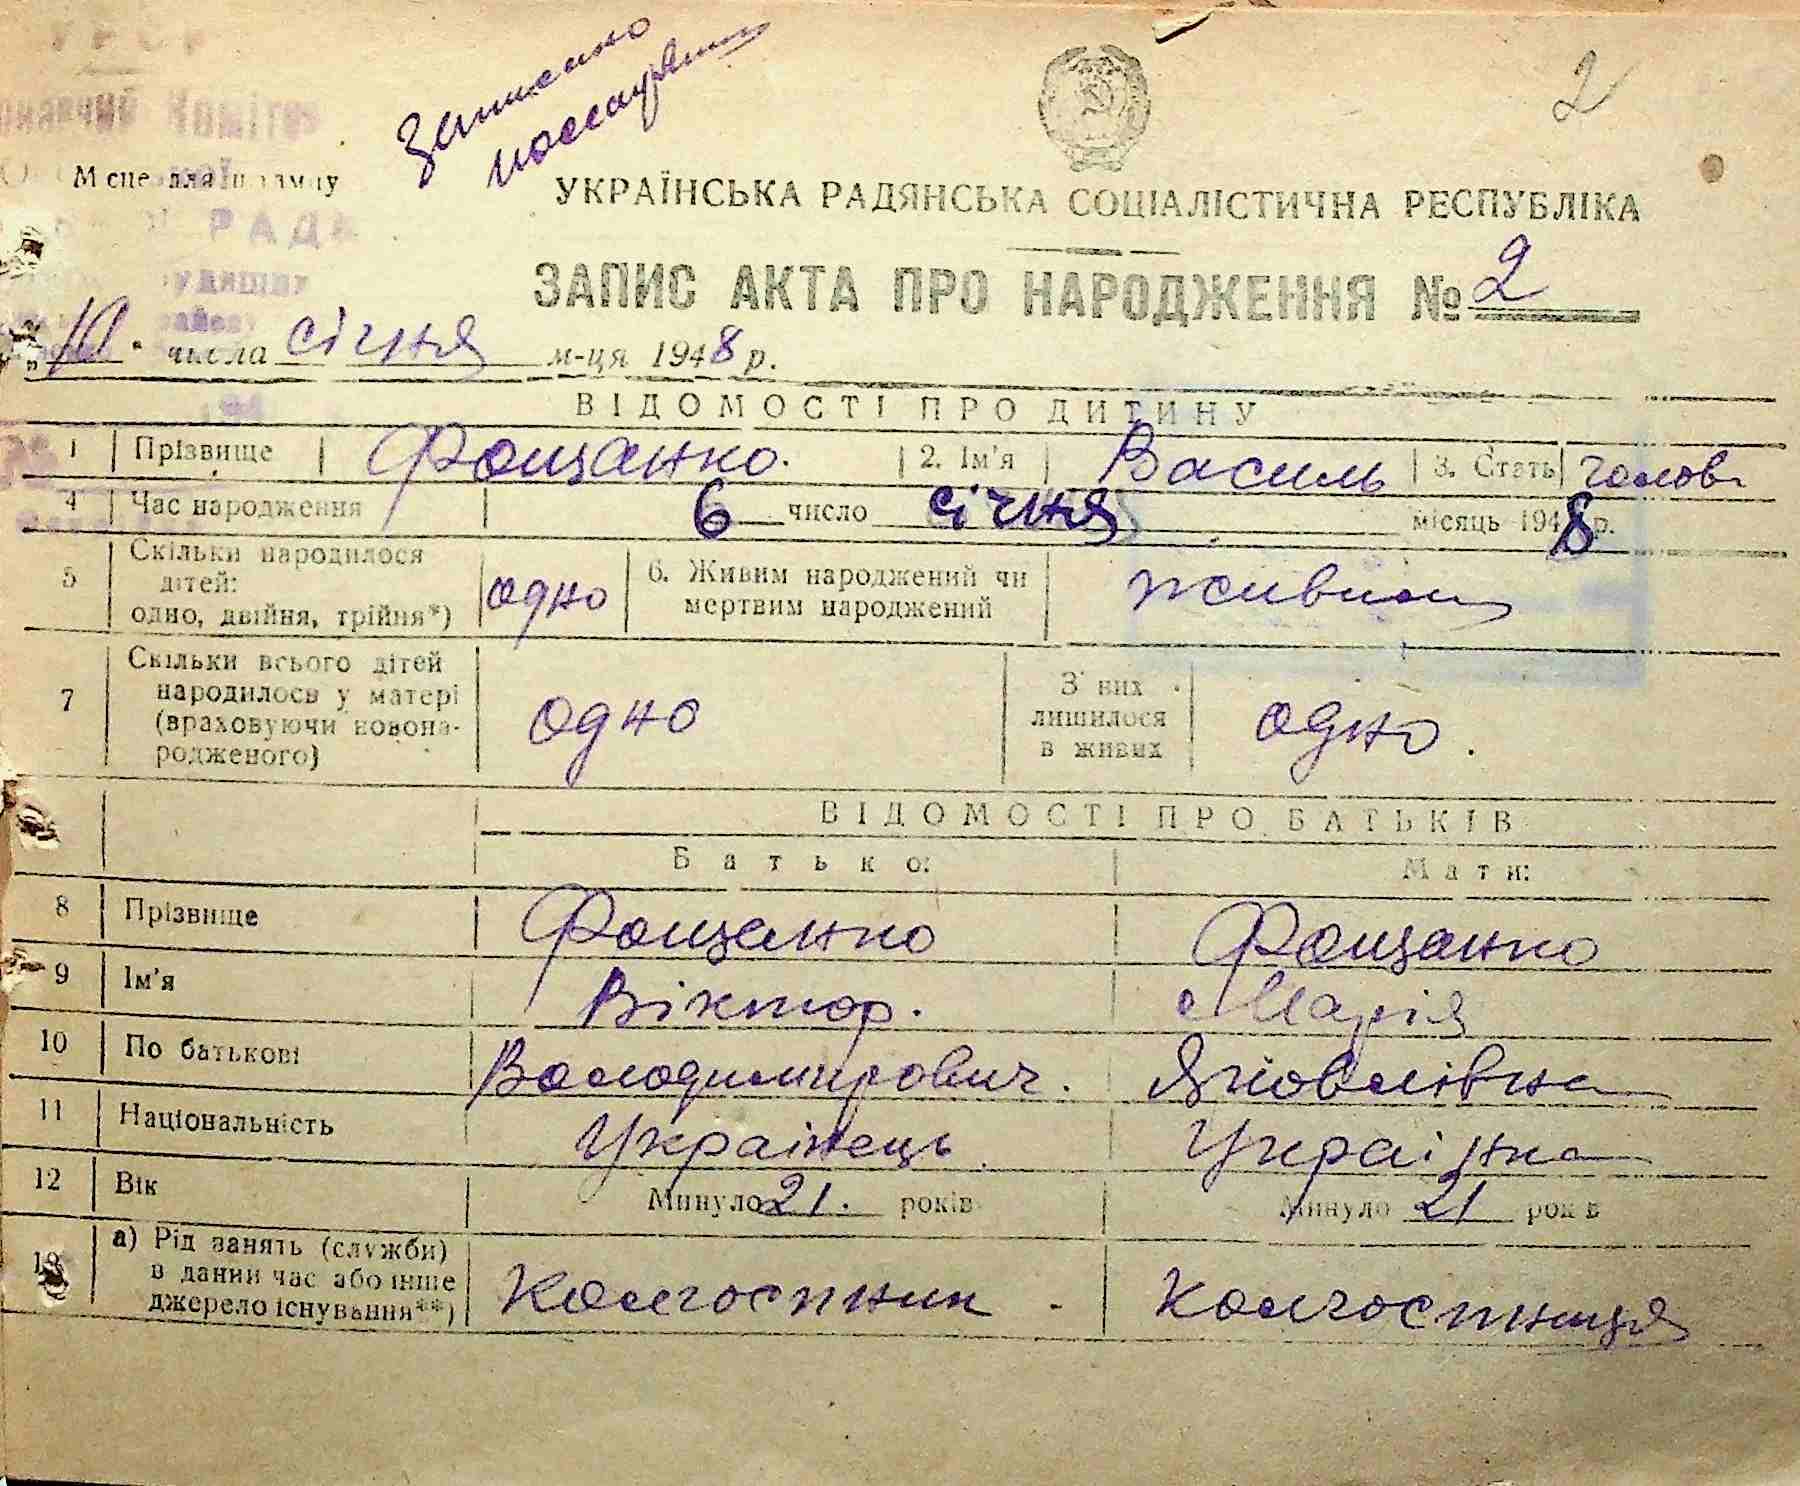 УРСР
Комітет
Місце для штампу
РАДА
Записано
2
УКРАЇНСЬКА РАДЯНСЬКА СОЦІАЛІСТИЧНА РЕСПУБЛІКА
ЗАПИС АКТА ПРО НАРОДЖЕННЯ № 2
„10" числа січня м-ця 1948 р.
ВІДОМОСТІ ПРО ДИТИНУ
1 Прізвище Фощанко. 2. Ім'я Василь 3. Стать чолов.
4 Час народження 6 число січня місяць 1948 р.
5 Скільки народилося дітей: одно, двійня, трійня*) одно 6. Живим народжений чи мертвим народжений живим
7 Скільки всього дітей народилося у матері (враховуючи новонародженого) одно З них лишилося в живих одно.
ВІДОМОСТІ ПРО БАТЬКІВ
Батько: Мати:
8 Прізвище Фощанко Фощанко
9 Ім'я Віктор. Марія
10 По батькові Володимирович. Яковлівна
11 Національність Українець Українка
12 Вік Минуло 21. років Минуло 21 років
13 а) Рід занять (служби) в даний час або інше джерело існування**) Колгоспник. Колгоспниця